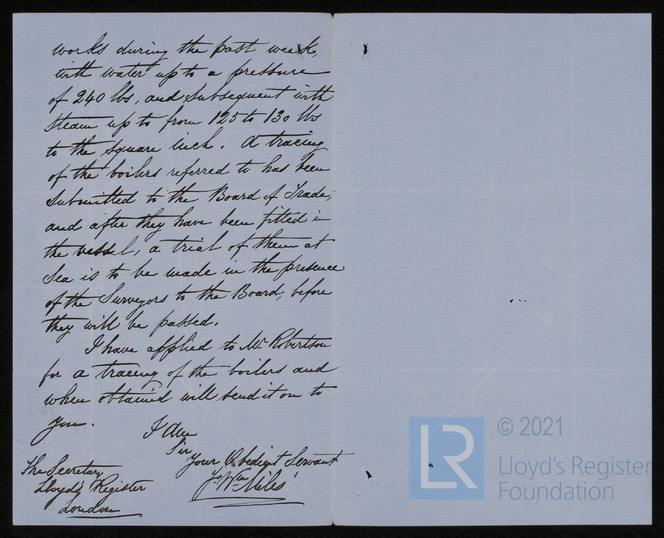 works during the past week,
with water up to a pressure
of 240 lbs, and subsequent with
Steam up to from 125 to 130 lbs
to the square inch. A tracing
of the boilers referred to has been
submitted to the Board of Trade,
and after they have been fitted in
the vessel, a trial of them at
Sea is to be made in the presence
of the Surveyors to the Board, before
they will be passed.
I have applied to Mr Robertson
for a tracing of the boilers and
when obtained will send it on to
you.
I am
Sir
Your Obedient Servant
Wm Miles
The Secretary
Lloyds Register
London
LR © 2021
Lloyd's Register
Foundation